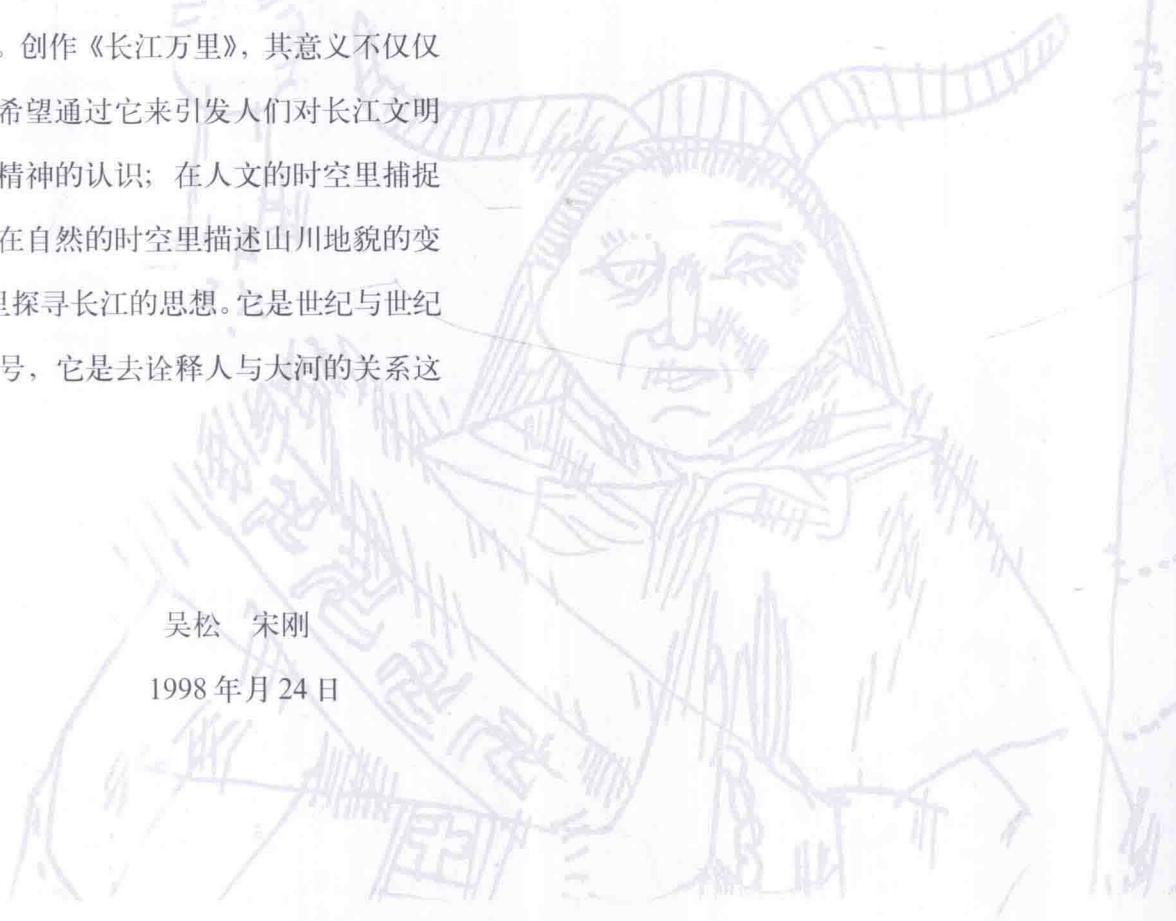 。创作《长江万里》，其意义不仅仅
希望通过它来引发人们对长江文明
精神的认识；在人文的时空里捕捉
在自然的时空里描述山川地貌的变
里探寻长江的思想。它是世纪与世纪
号，它是去诠释人与大河的关系这
吴松 宋刚
1998年月24日